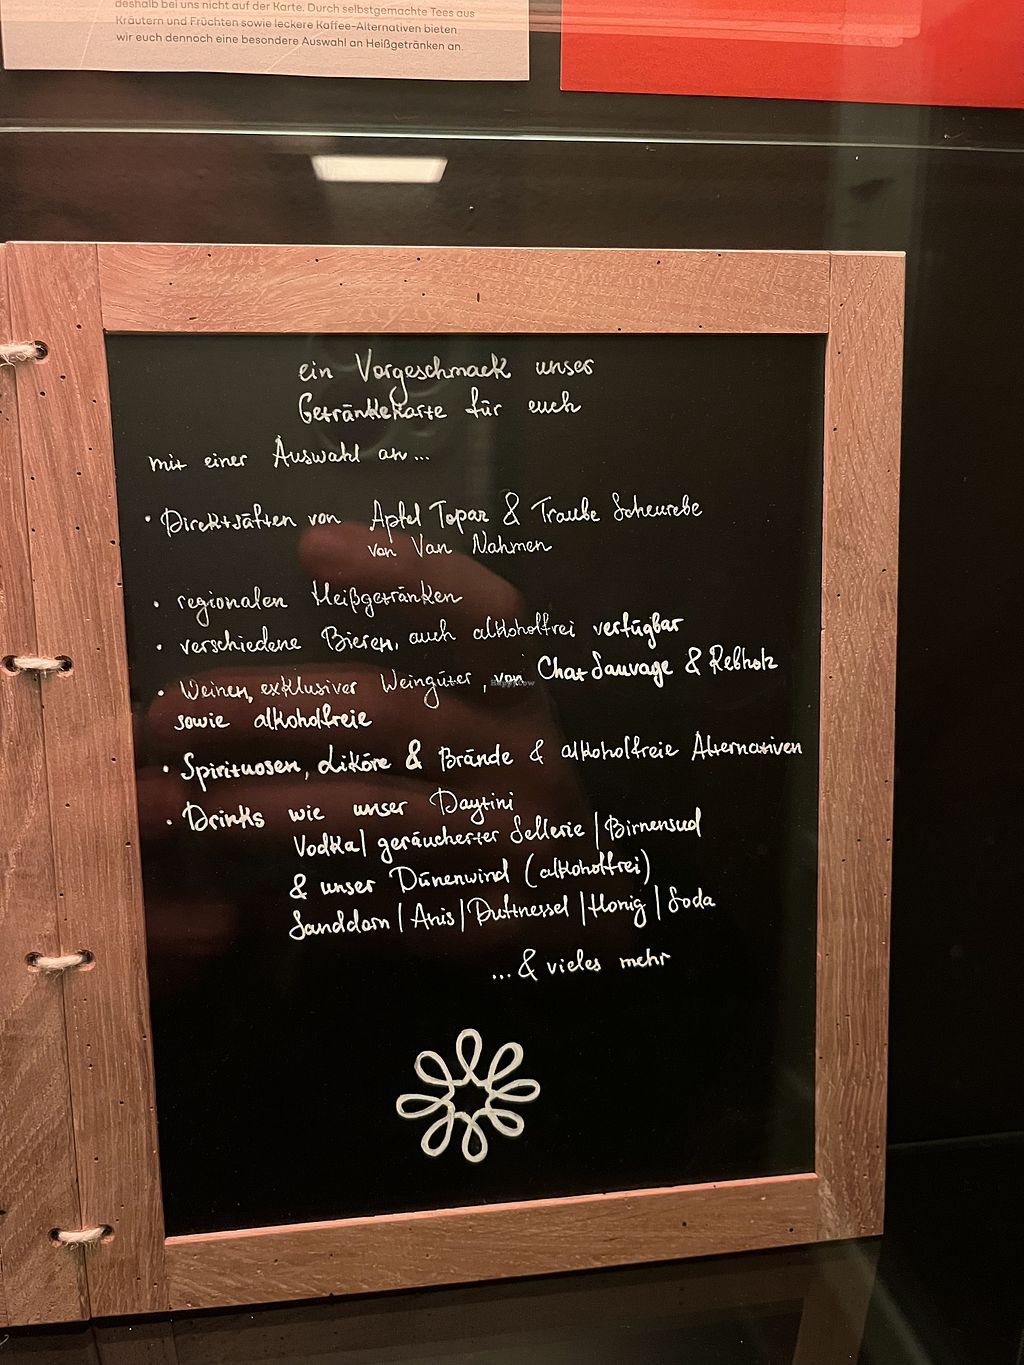 deshalb bei uns nicht auf der Karte. Durch selbstgemachte Tees aus
Kräutern und Früchten sowie leckere Kaffee-Alternativen bieten
wir euch dennoch eine besondere Auswahl an Heißgetränken an.
ein Vorgeschmack unser
Getränkekarte für euch
mit einer Auswahl an...
• Direktsäften von Apfel Topaz & Traube Scheurebe
von Van Nahmen
• regionalen Heißgetränken
• verschiedene Bieren, auch alkoholfrei verfügbar
• Weinen, exklusiver Weingüter, von Chat Sauvage & Rebholz
sowie alkoholfreie
• Spirituosen, Liköre & Brände & alkoholfreie Alternativen
• Drinks wie unser Daytini
Vodka | geräucherter Sellerie | Birnensud
& unser Dünenwind (alkoholfrei)
Sanddorn | Anis | Duftnessel | Honig | Soda
...& vieles mehr